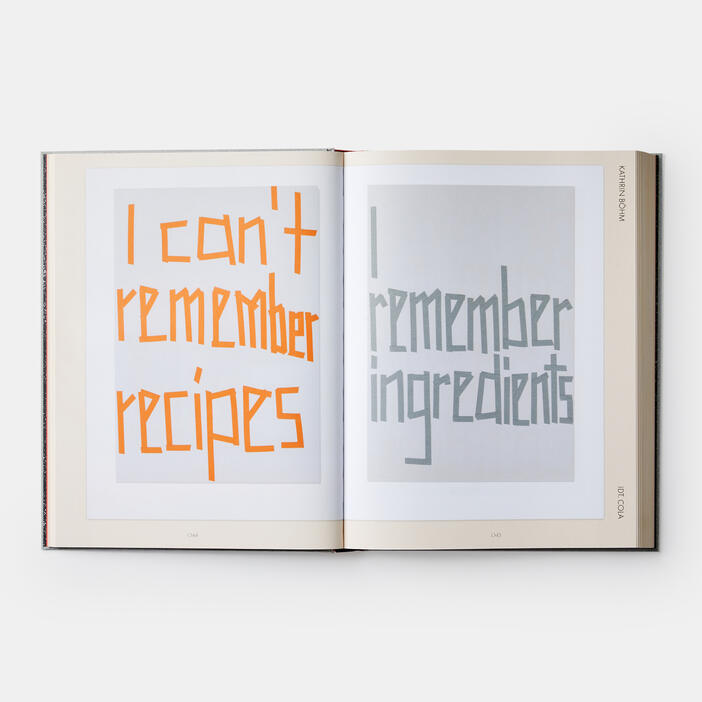 I can't
remember
recipes
I
remember
ingredients
KATHRIN BÖHM
IDT. COLA